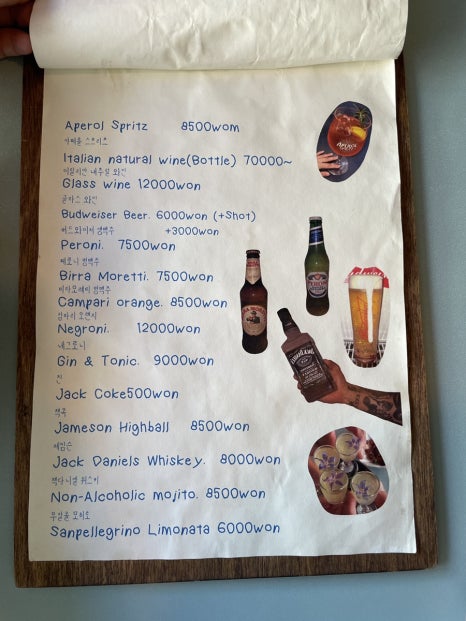 Aperol Spritz 8500wom
아페롤 스프리츠
Italian natural wine(Bottle) 70000~
이탈리안 내추럴 와인
Glass wine 12000won
글라스 와인
Budweiser Beer. 6000won (+Shot)
버드와이저 병맥주 +3000won
Peroni. 7500won
페로니 병맥주
Birra Moretti. 7500won
비라모레띠 병맥주
Campari orange. 8500won
캄파리 오렌지
Negroni. 12000won
네그로니
Gin & Tonic. 9000won
진
Jack Coke500won
잭콕
Jameson Highball 8500won
제임슨
Jack Daniels Whiskey. 8000won
잭다니엘 위스키
Non-Alcoholic mojito. 8500won
무알콜 모히또
Sanpellegrino Limonata 6000won
APEROL